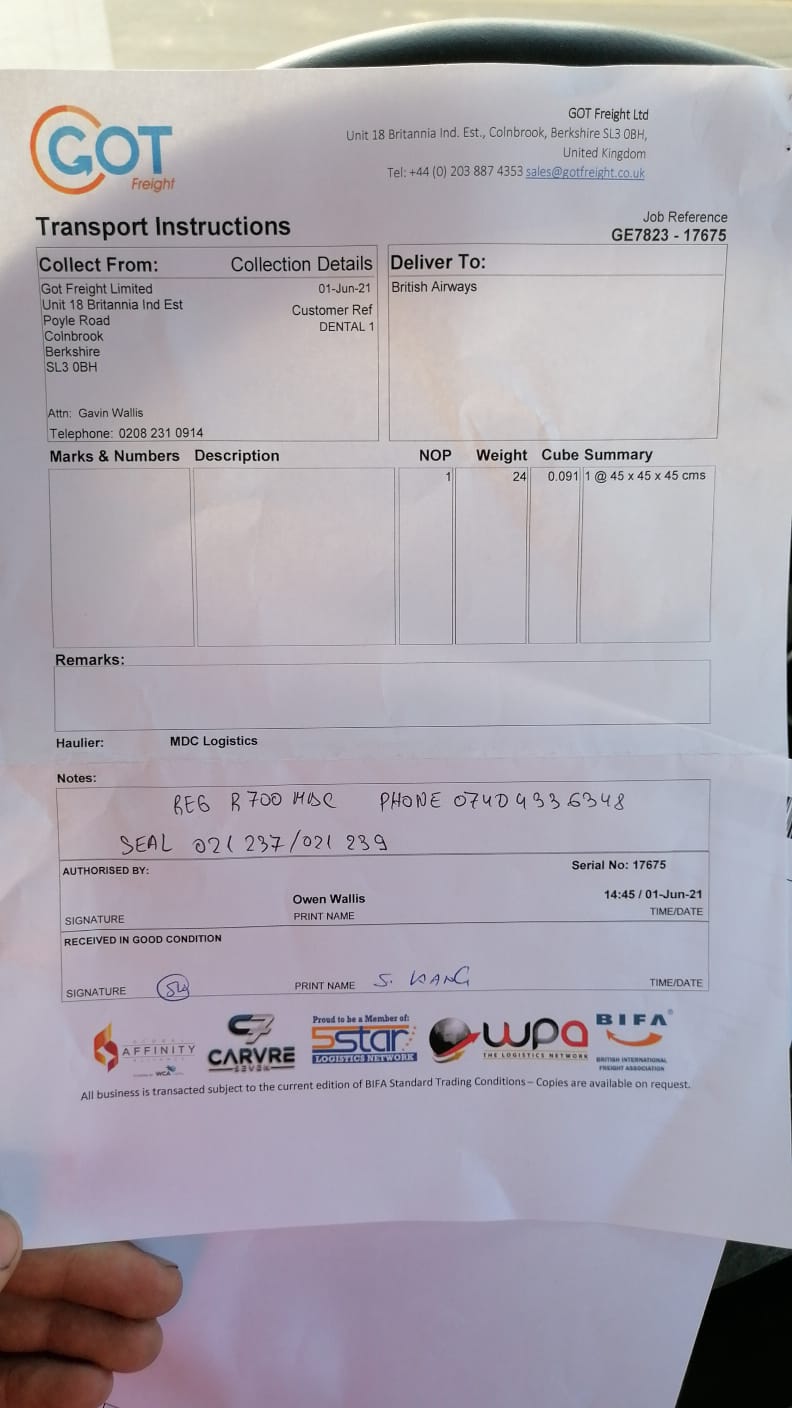 GOT
Freight
GOT Freight Ltd
Unit 18 Britannia Ind. Est., Colnbrook, Berkshire SL3 0BH,
United Kingdom
Tel: +44 (0) 203 887 4353 sales@gotfreight.co.uk
Transport Instructions
Job Reference
GE7823 - 17675
Collect From: Collection Details
Got Freight Limited 01-Jun-21
Unit 18 Britannia Ind Est
Poyle Road Customer Ref
Colnbrook DENTAL 1
Berkshire
SL3 0BH
Attn: Gavin Wallis
Telephone: 0208 231 0914
Deliver To:
British Airways
Marks & Numbers Description NOP Weight Cube Summary
1 24 0.091 1 @ 45 x 45 x 45 cms
Remarks:
Haulier: MDC Logistics
Notes:
REG R700 MDC PHONE 07404336348
SEAL 021 237/021 239
AUTHORISED BY: Serial No: 17675
Owen Wallis 14:45 / 01-Jun-21
SIGNATURE PRINT NAME TIME/DATE
RECEIVED IN GOOD CONDITION
SIGNATURE PRINT NAME S. TIME/DATE
AFFINITY
WCA
CARVRE
SEVEN
Proud to be a Member of:
5star
LOGISTICS NETWORK
wpa
THE LOGISTICS NETWORK
BIFA®
BRITISH INTERNATIONAL
FREIGHT ASSOCIATION
All business is transacted subject to the current edition of BIFA Standard Trading Conditions – Copies are available on request.